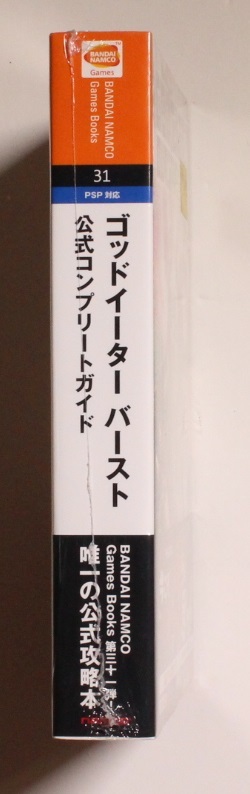 BANDAI
NAMCO
Games
BANDAI NAMCO
Games Books
31
PSP 対応
ゴッドイーター バースト
公式コンプリートガイド
BANDAI NAMCO
Games Books 第三十一弾
唯一の公式攻略本